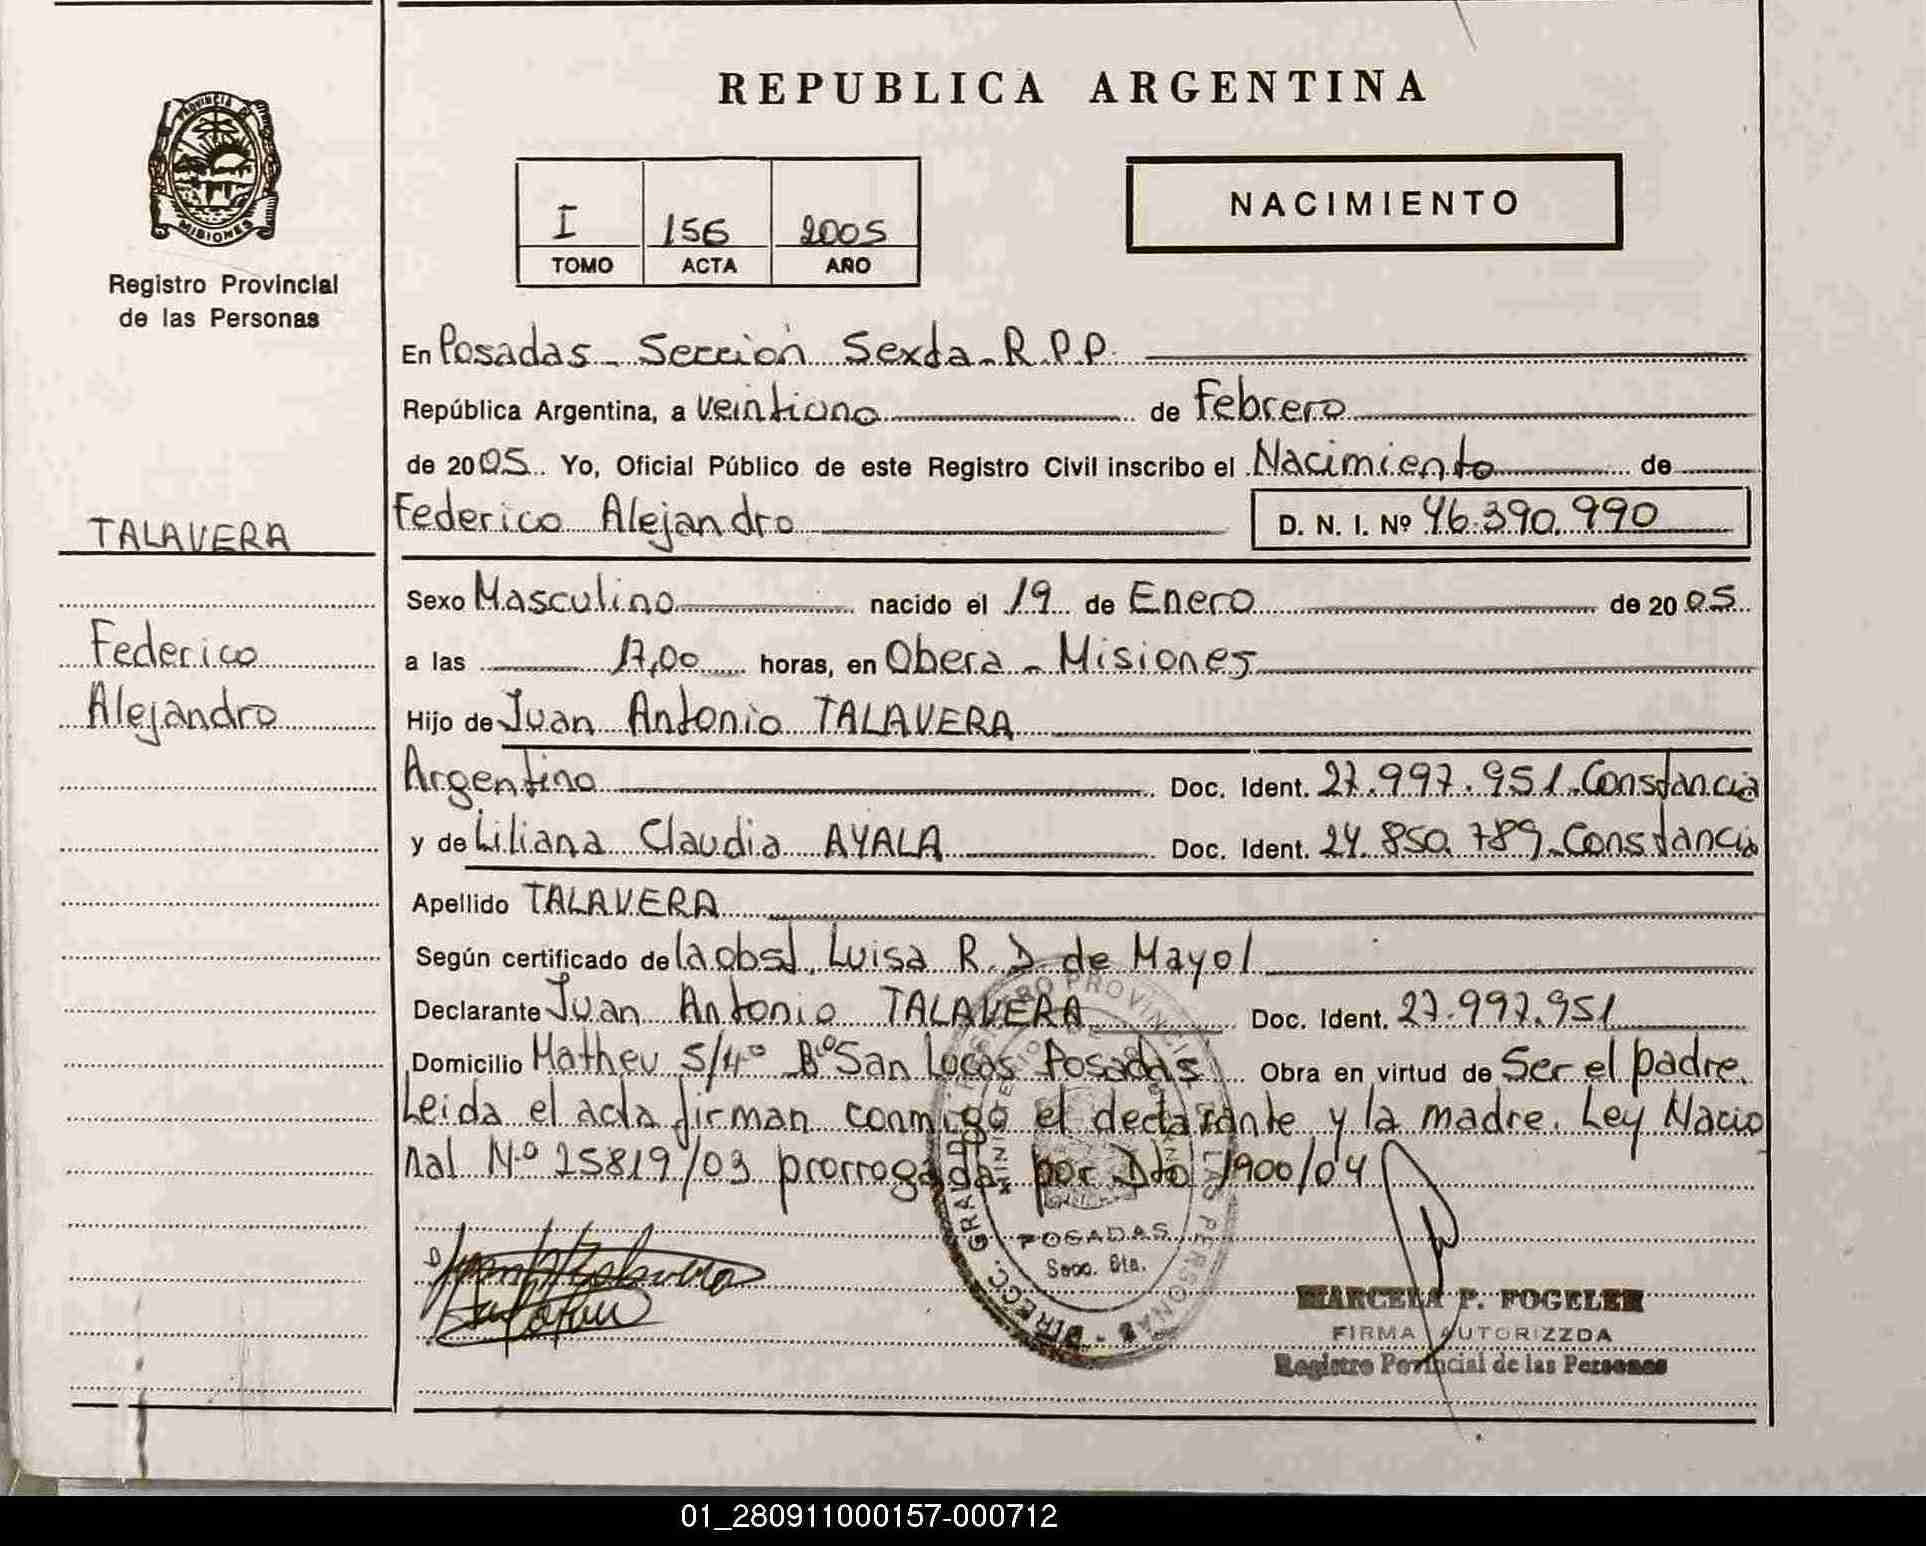 REPUBLICA ARGENTINA
PROVINCIA DE
MISIONES
Registro Provincial
de las Personas
I 156 2005
TOMO ACTA AÑO
NACIMIENTO
En Posadas - Sección Sexta - R.P.P.
República Argentina, a veintiuno de Febrero
de 2005 Yo, Oficial Público de este Registro Civil inscribo el Nacimiento de
TALAVERA
Federico Alejandro D. N. I. Nº 46.390.990
Sexo Masculino nacido el 19 de Enero de 2005
Federico
a las 17,00 horas, en Obera - Misiones
Alejandro
Hijo de Juan Antonio TALAVERA
Argentino Doc. Ident. 27.997.951 - Constancia
y de Liliana Claudia AYALA Doc. Ident. 24.850.789 - Constancia
Apellido TALAVERA
Según certificado de la obst. Luisa R. D. de Mayol
Declarante Juan Antonio TALAVERA Doc. Ident. 27.997.951
Domicilio Matheu S/4º Bº San Lucas Posadas Obra en virtud de Ser el padre.
Leida el acta firman conmigo el declarante y la madre. Ley Nacio
nal Nº 25819/03 prorrogada por Dto 1900/04
POSADAS
Secc. 6ta.
MARCELA P. FOGELER
FIRMA AUTORIZZDA
Registro Povincial de las Personas
01_280911000157-000712